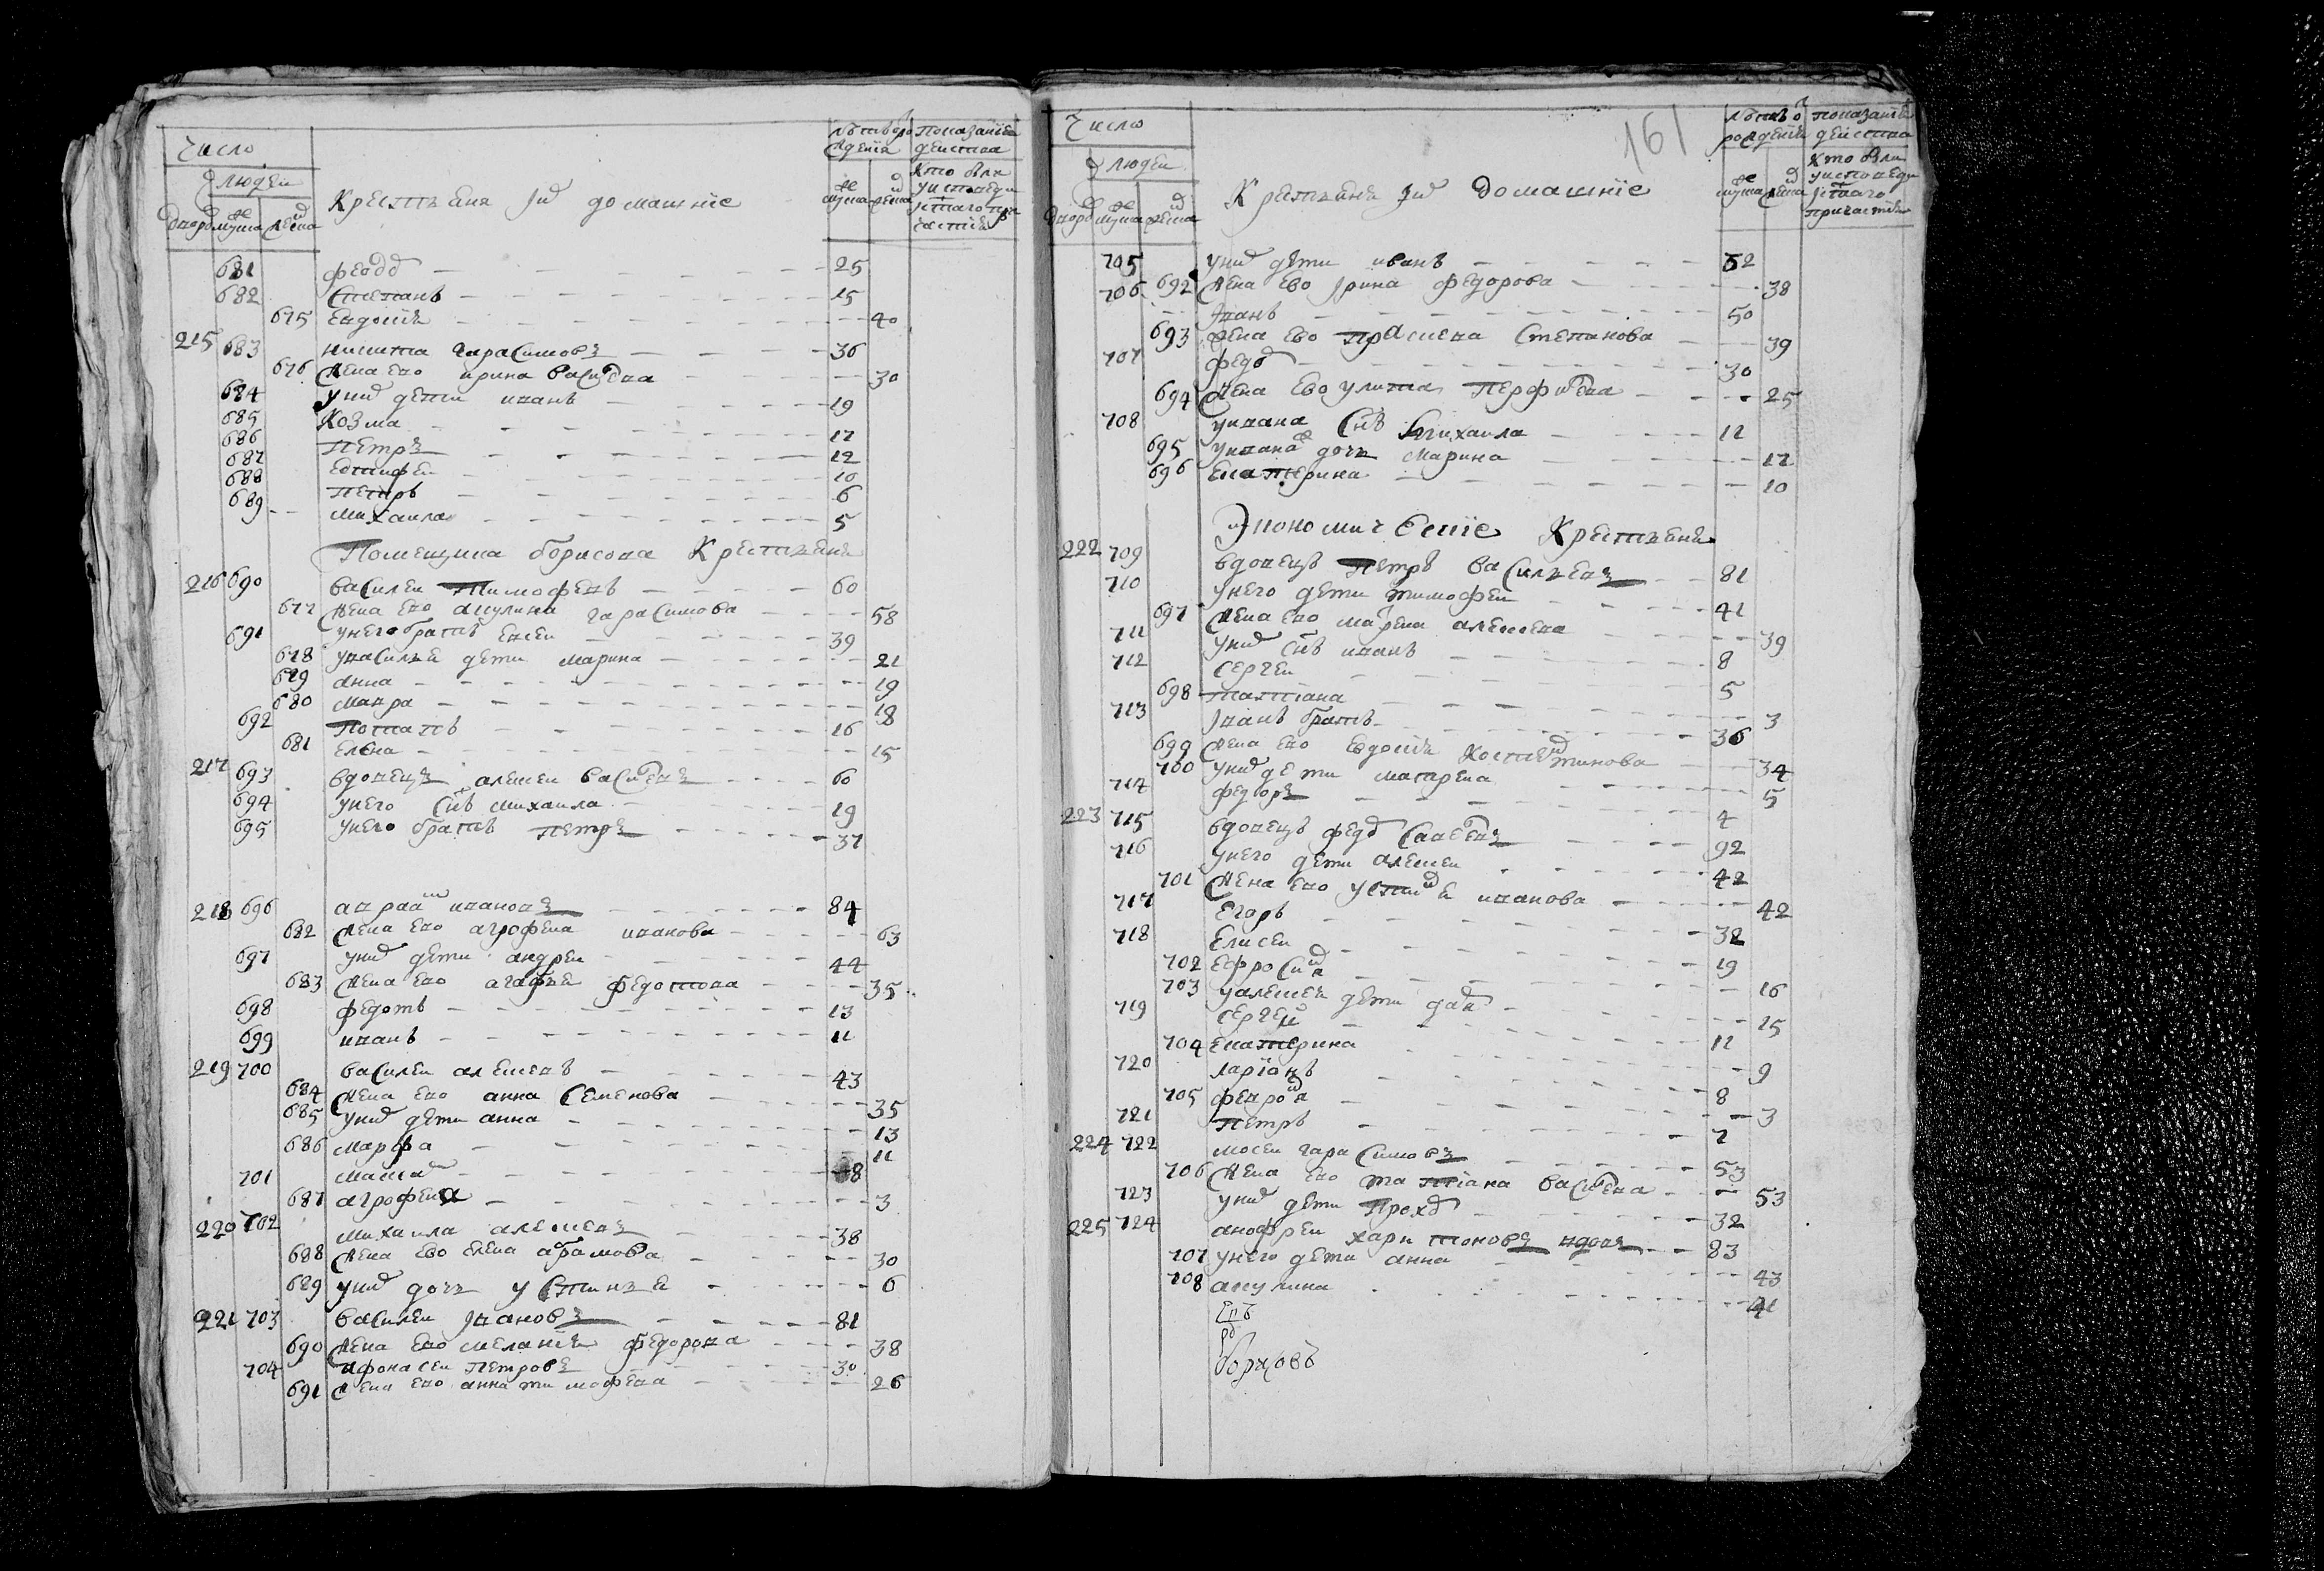 Число
людеи
дворо муже женс
Крестьяня их домашние
лѣтъ рождения
муже женс
показание действа
кто были у исповеди и святаго причастия
681 федор 25
682 Степанъ 15
675 Евдокия 40
215 683 никита гарасимовъ 36
676 жена ево ирина васильева 30
684 у них дети иванъ 19
685 Козма 17
686 Петръ 12
687 Евтифеи 10
688 Петръ 6
689 михаила 5
Помещика борисова Крестьяня
216 690 василеи Тимофеевъ 60
677 жена ево акулина гарасимова 58
691 у него братъ евсеи 39
678 у василья дети марина 21
679 анна 19
680 мавра 18
692 Потапъ 16
681 елена 15
217 693 вдовецъ алексеи васильевъ 60
694 у него снъ михаила 19
695 у него братъ петръ 37
218 696 авраам ивановъ 84
682 жена ево агрофена иванова 63
697 у них дети андреи 44
683 жена ево агафья федотова 35
698 федотъ 13
699 иванъ 11
219 700 василеи алексеевъ 43
684 жена ево анна Семенова 35
685 у них дети анна 13
686 марфа 11
701 максим 8
687 агрофена 3
220 702 михаила алексеевъ 38
688 жена ево елена абрамова 30
689 у них дочь устинья 6
221 703 василеи Ивановъ 81
690 жена ево мелания федорова 38
704 афонасеи петровъ 30
691 жена ево анна тимофеева 26
161
Число
людеи
дворо муже женс
Крестьяня их домашние
лѣтъ рождения
муже женс
показание действа
кто были у исповеди и святаго причастия
705 у них дети иванъ 52
692 жена ево Ирина федорова 38
706 Иванъ 50
693 жена ево Праскева Степанова 39
707 федор 30
694 жена ево улита Перфильева 25
708 у ивана снъ михаила 11
695 у ивана же дочь марина 17
696 екатерина 10
Экономические Крестьяня
222 709 вдовецъ Петръ васильевъ 81
710 у него дети тимофеи 41
697 жена ево матрена алексеева 39
711 у них снъ иванъ 8
712 сергеи 5
698 татиана 3
713 Иванъ братъ 36
699 жена ево Евдокия Костентинова 34
700 у них дети матрена 5
714 федоръ 4
223 715 вдовецъ федор Савельевъ 92
716 у него дети алексеи 42
701 жена ево устинья иванова 42
717 Егоръ 32
718 Елисеи 19
702 ефросиня 16
703 у алексея дети дарья 15
719 сергеи 11
704 екатерина 9
720 ларионъ 8
705 феврония 3
721 Петръ 7
224 722 мосеи гарасимовъ 53
706 жена ево татиана васильева 53
723 у них дети Прохор 32
225 724 анофреи харитоновъ вдовъ 83
707 у него дети анна 43
708 акулина 41
борисовъ